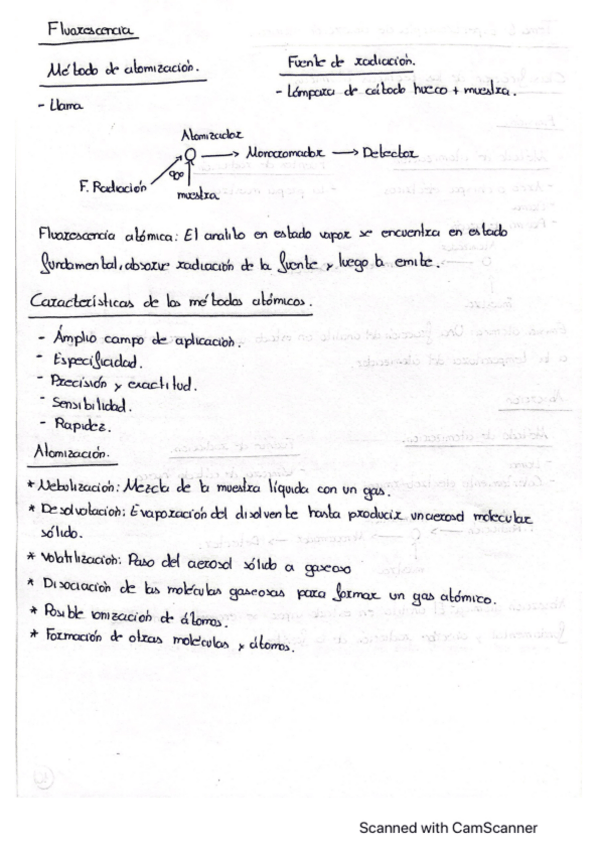 Fluorescencia
Método de atomización.
Fuente de radiación.
- Llama
- Lámpara de cátodo hueco + muestra.
Atomizador
Monocromador
Detector
F. Radiación
90º
muestra
Fluorescencia atómica: El analito en estado vapor se encuentra en estado
fundamental, absorve radiación de la fuente y luego la emite.
Características de los métodos atómicos.
- Ámplio campo de aplicación.
- Especificidad.
- Precisión y exactitud.
- Sensibilidad.
- Rapidez.
Atomización.
* Nebulización: Mezcla de la muestra líquida con un gas.
* Desolvatacion: Evaporación del disolvente hasta producir un aerosol molecular
sólido.
* Volatilización: Paso del aerosol sólido a gaseoso
* Disociación de las moléculas gaseosas para formar un gas atómico.
* Posible ionización de átomos.
* Formación de otras moléculas y átomos.
Scanned with CamScanner